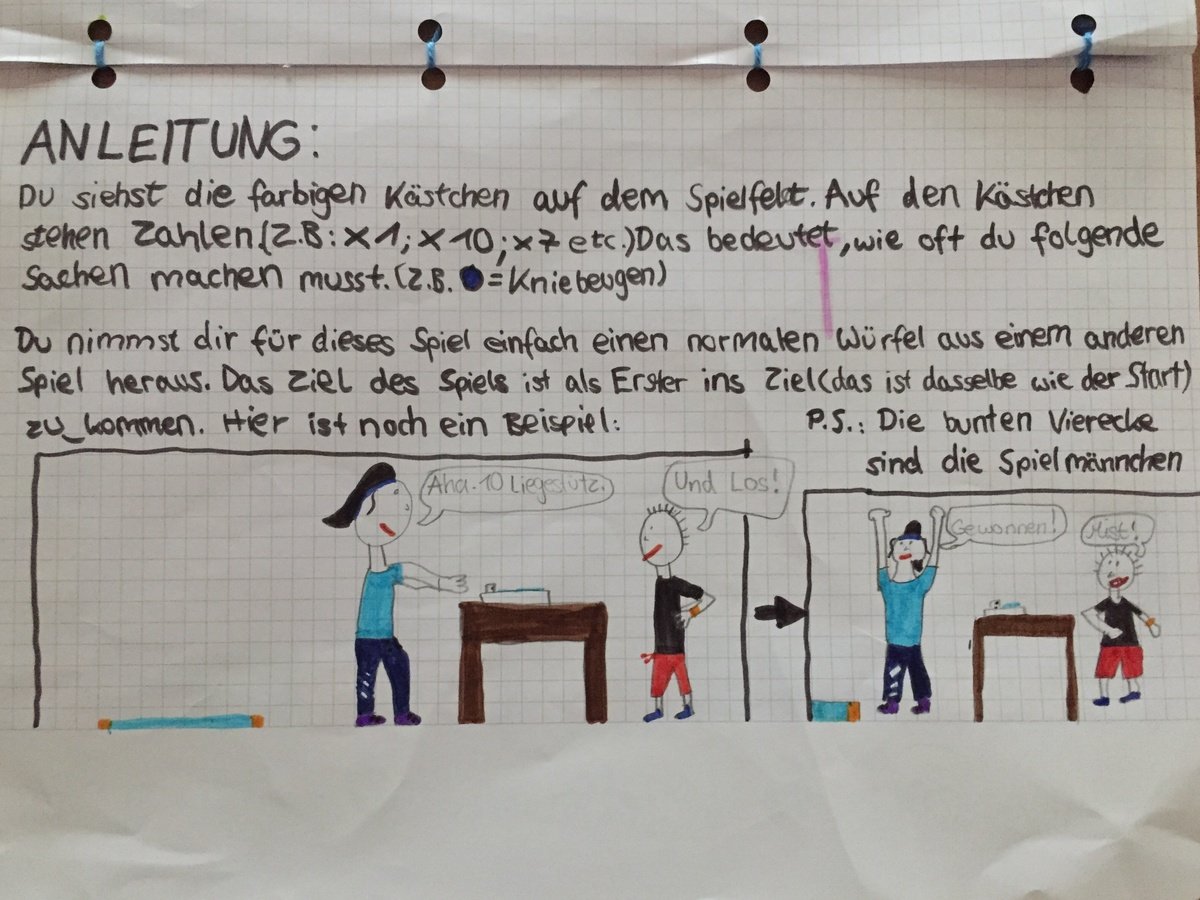 ANLEITUNG:
Du siehst die farbigen Kästchen auf dem Spielfeld. Auf den Kästchen
stehen Zahlen (z.B: x1; x10; x7 etc.) Das bedeutet, wie oft du folgende
Sachen machen musst. (z.B. = Kniebeugen)
Du nimmst dir für dieses Spiel einfach einen normalen Würfel aus einem anderen
Spiel heraus. Das Ziel des Spiels ist als Erster ins Ziel (das ist dasselbe wie der Start)
zu kommen. Hier ist noch ein Beispiel:
P.S.: Die bunten Vierecke
sind die Spielmännchen
Aha. 10 Liegestütz.
Und Los!
Gewonnen!
Mist!